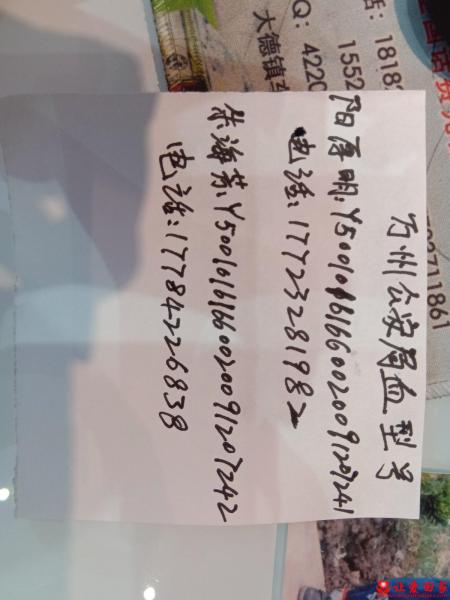 万州公安局血型号
阳厚明:Y500101161660020091207241
电话:17723281982
朱海芳:Y500101161660020091207242
电话:17784226838
话:1818
Q:4220
1552
大德镇
02711861
让爱回家